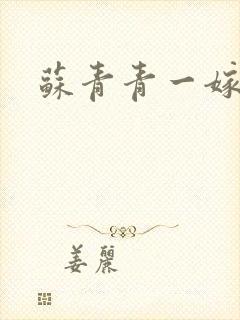 蘇青青一嫁
姜麗